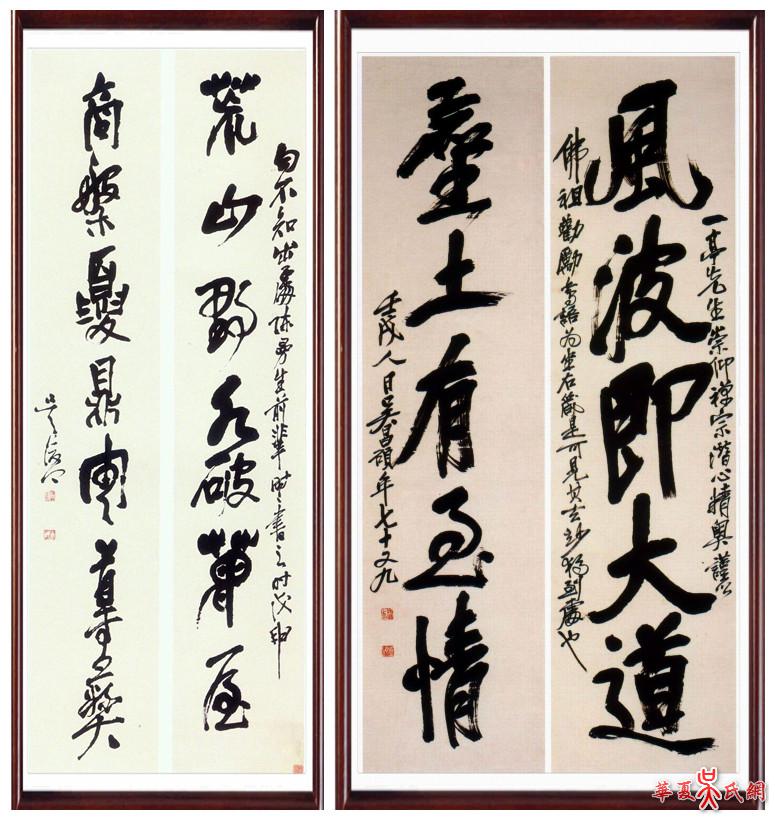 風波即大道
一亭先生崇仰禪宗潛心精奧謹以
佛祖勸勵為坐右箴是可見其玄妙獨到處也
塵土有至情
壬戌人日吳昌碩年七十又九
荒山野水破屋
句不知出處生前輩書之時戊申
商槃夏鼎周尊彝
吳俊卿
華夏吳氏網